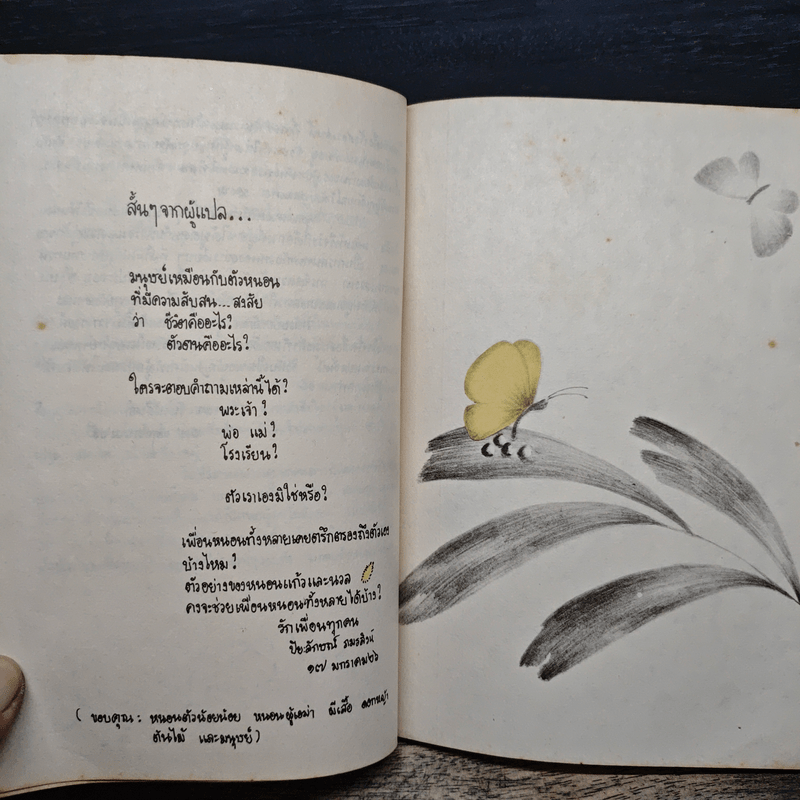 สั้นๆจากผู้แปล...
มนุษย์เหมือนกับตัวหนอน
ที่มีความสับสน...สงสัย
ว่า ชีวิตคืออะไร?
ตัวตนคืออะไร?
ใครจะตอบคำถามเหล่านี้ได้?
พระเจ้า?
พ่อ แม่?
โรงเรียน?
ตัวเราเองมิใช่หรือ?
เพื่อนหนอนทั้งหลายเคยตรึกตรองถึงตัวเอง
บ้างไหม?
ตัวอย่างของหนอนแก้วและนวล
คงจะช่วยเพื่อนหนอนทั้งหลายได้บ้าง?
รักเพื่อนทุกคน
ปิยะลักษณ์ ภมรสิงน์
๑๗ มกราคม๒๖
( ขอบคุณ: หนอนตัวน้อยน้อย หนอนผู้เฒ่า ผีเสื้อ ดอกหญ้า
ต้นไม้ และมนุษย์)